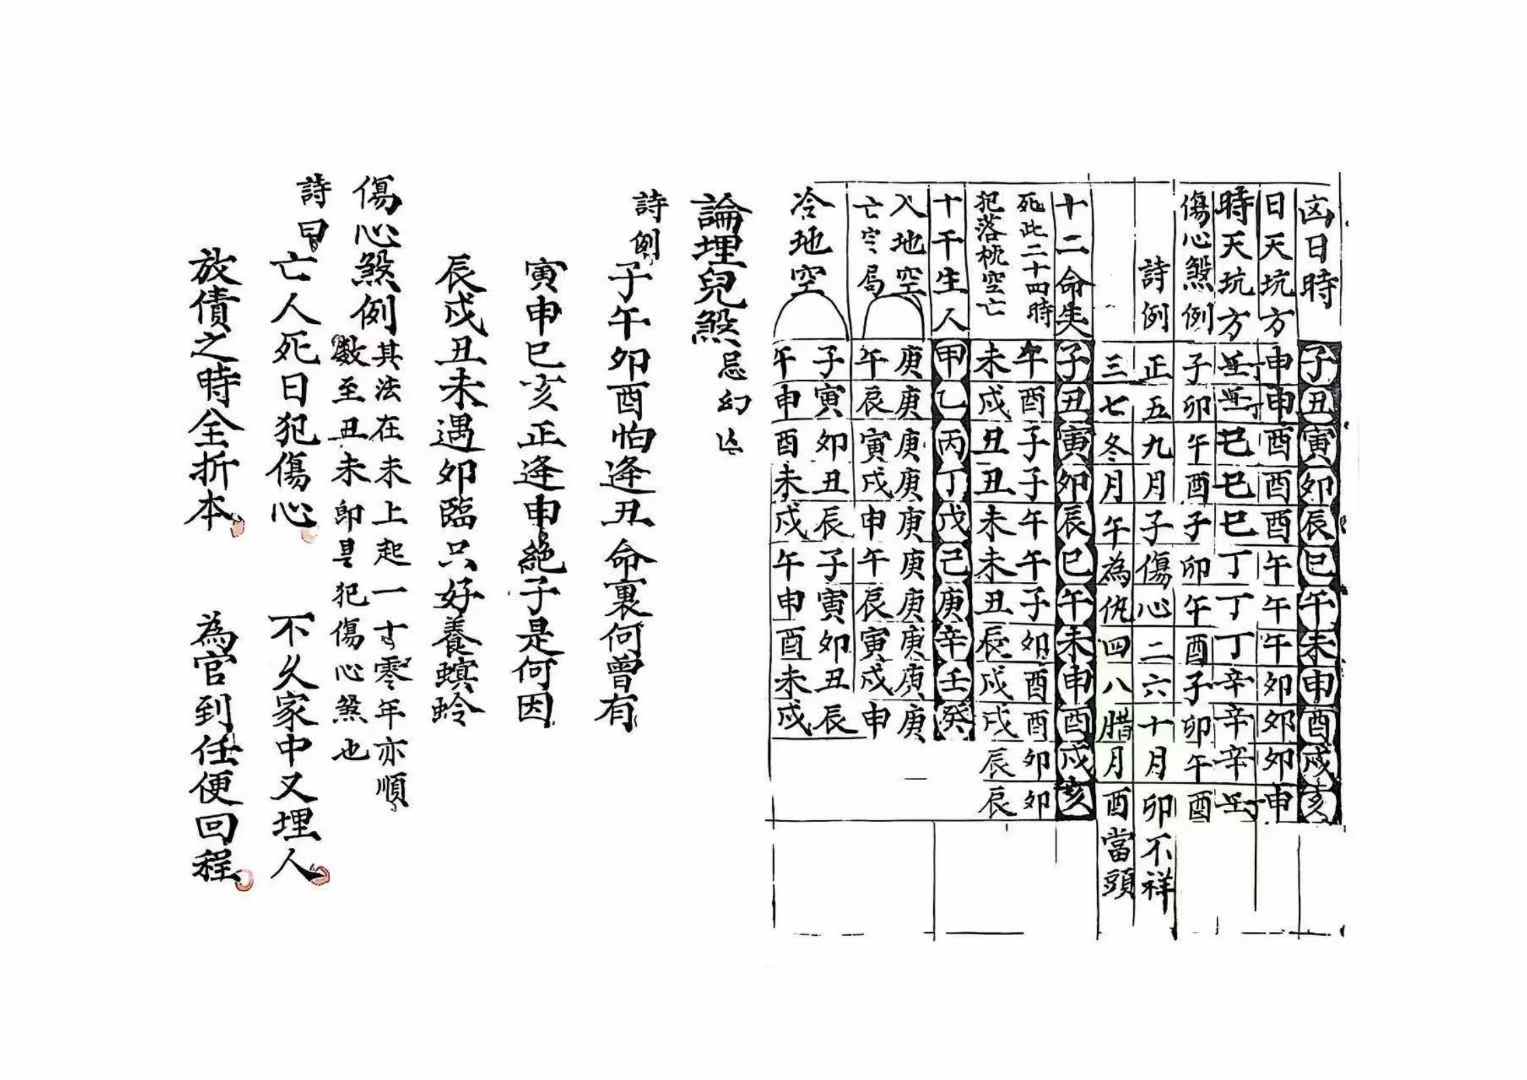 凶日時 子丑寅卯辰巳午未申酉戌亥
日天坑方 申申酉酉酉午午午卯卯卯申
時天坑方 巳巳巳丁丁丁辛辛辛
傷心煞例 子卯午酉子卯午酉子卯午酉
詩例 正五九月子傷心二六十月卯不祥
三七冬月午為仇四八腊月酉當頭
十二命生人 子丑寅卯辰巳午未申酉戌亥
死此二十四時 午酉子子午午子卯酉酉卯卯
犯落枕空亡 未戌丑丑未未丑辰戌戌辰辰
十干生人 甲乙丙丁戊己庚辛壬癸
入地空 庚庚庚庚庚庚庚庚庚庚
亡字局 午辰寅戌申午辰寅戌申
冷地空 子寅卯丑辰子寅卯丑辰
午申酉未戌午申酉未戌
論埋兒煞 忌幻亡
詩例 子午卯酉怕逢丑 命裏何曾有
寅申巳亥正逢申 絕子是何因
辰戌丑未遇卯臨 只好養螟蛉
傷心煞例 其法在未上起一十零年亦順
數至丑未即是犯傷心煞也
詩曰 亡人死日犯傷心 不久家中又埋人
放債之時全折本 為官到任便回程